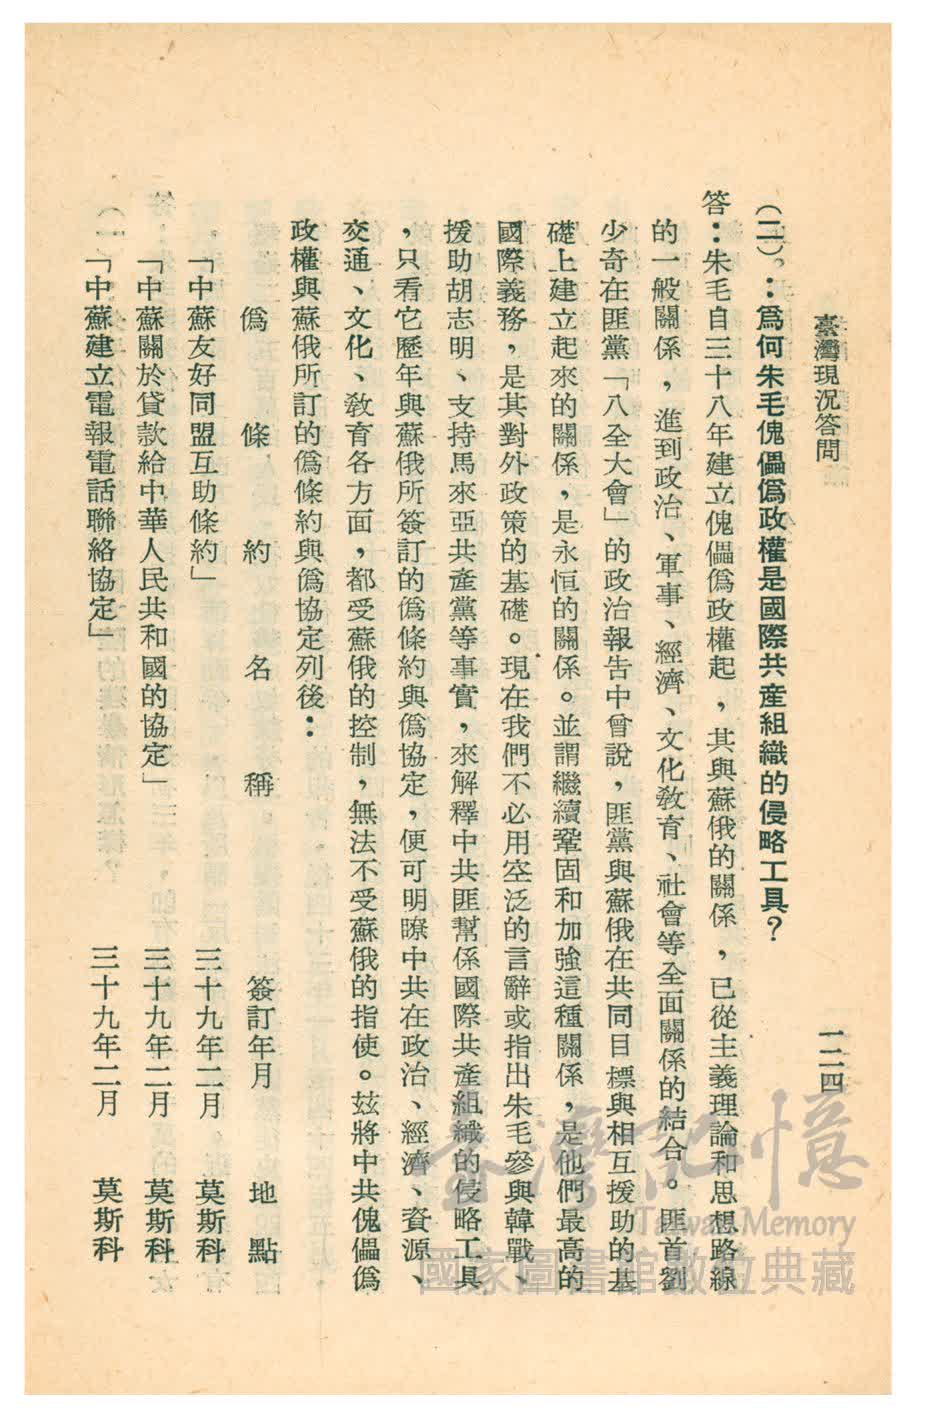 臺灣現況答問
一二四
(二)。：爲何朱毛傀儡僞政權是國際共產組織的侵略工具？
答：朱毛自三十八年建立傀儡僞政權起，其與蘇俄的關係，已從主義理論和思想路線
的一般關係，進到政治、軍事、經濟、文化敎育、社會等全面關係的結合。匪首劉
少奇在匪黨「八全大會」的政治報告中曾說，匪黨與蘇俄在共同目標與相互援助的基
礎上建立起來的關係，是永恒的關係。並謂繼續鞏固和加強這種關係，是他們最高的
國際義務，是其對外政策的基礎。現在我們不必用空泛的言辭或指出朱毛參與韓戰、
援助胡志明、支持馬來亞共產黨等事實，來解釋中共匪幫係國際共產組織的侵略工具
，只看它歷年與蘇俄所簽訂的僞條約與僞協定，便可明瞭中共在政治、經濟、資源、
交通、文化、敎育各方面，都受蘇俄的控制，無法不受蘇俄的指使。玆將中共傀儡僞
政權與蘇俄所訂的僞條約與僞協定列後：
僞條約名稱　簽訂年月　地點
「中蘇友好同盟互助條約」　三十九年二月　莫斯科
「中蘇關於貸款給中華人民共和國的協定」　三十九年二月　莫斯科
「中蘇建立電報電話聯絡協定」　三十九年二月　莫斯科
臺灣記憶
Taiwan Memory
國家圖書館數位典藏